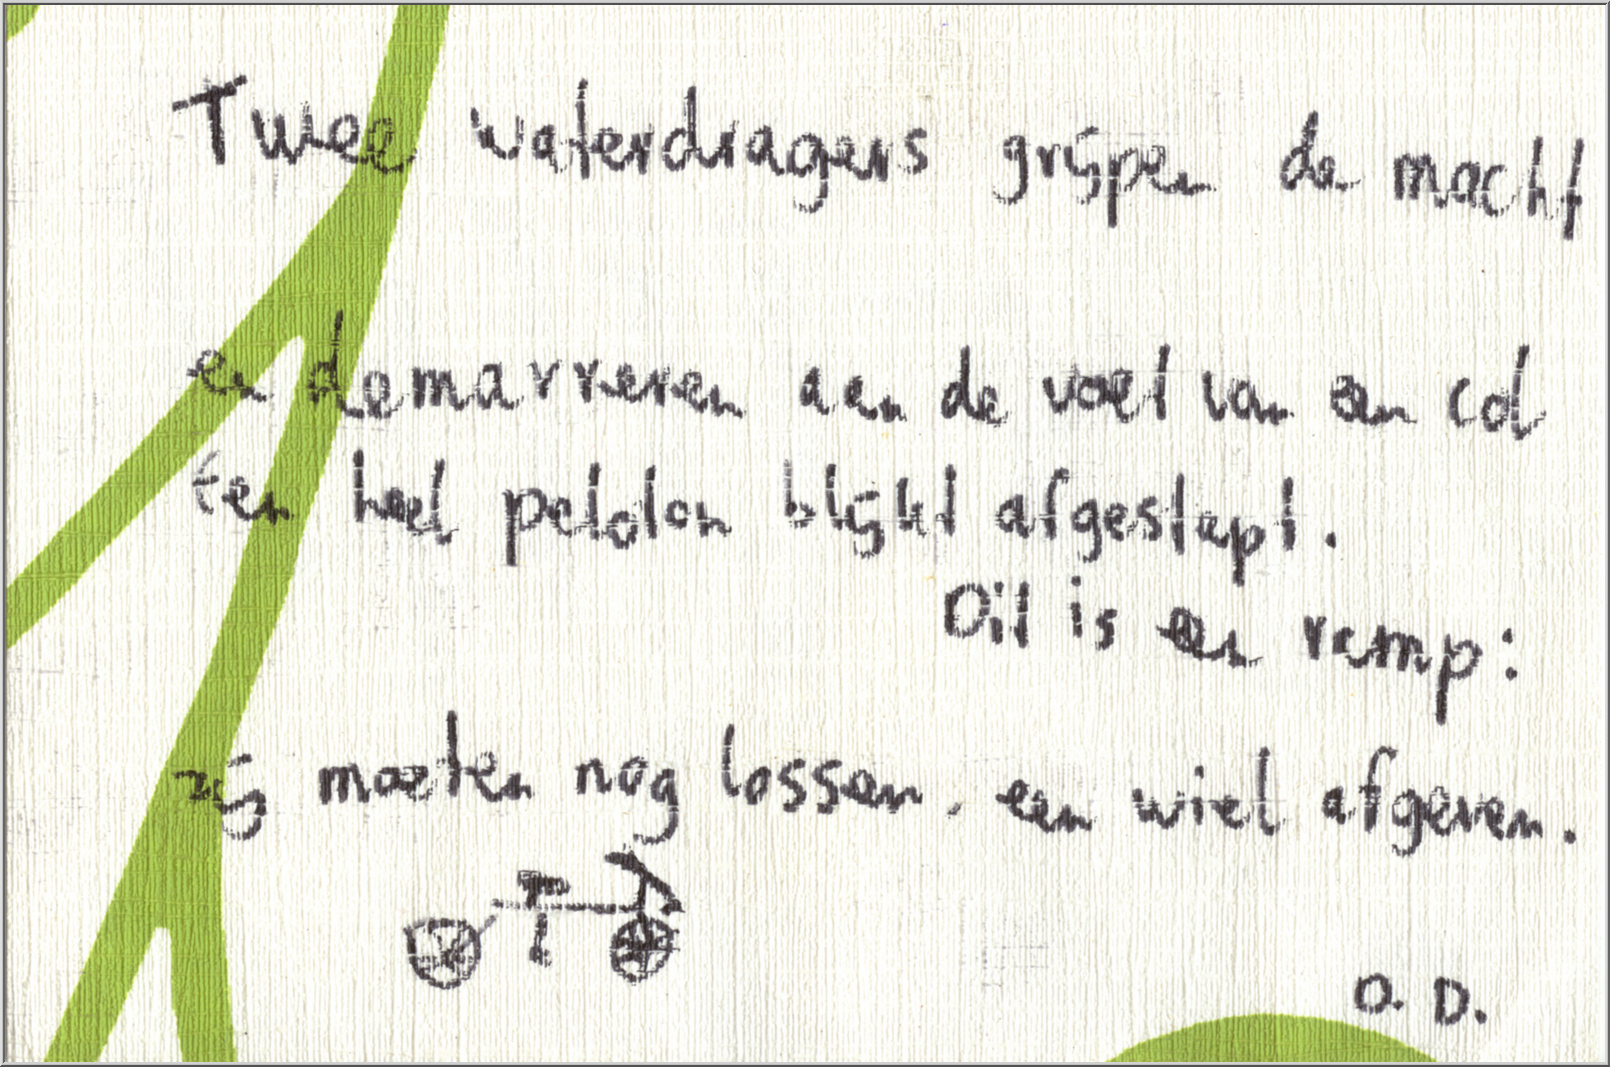 Twee waterdragers grijpen de macht
en demarreren aan de voet van een col
Een heel peloton blijkt afgestapt.
Dit is een ramp:
zij moeten nog lossen. een wiel afgeven.
O. D.